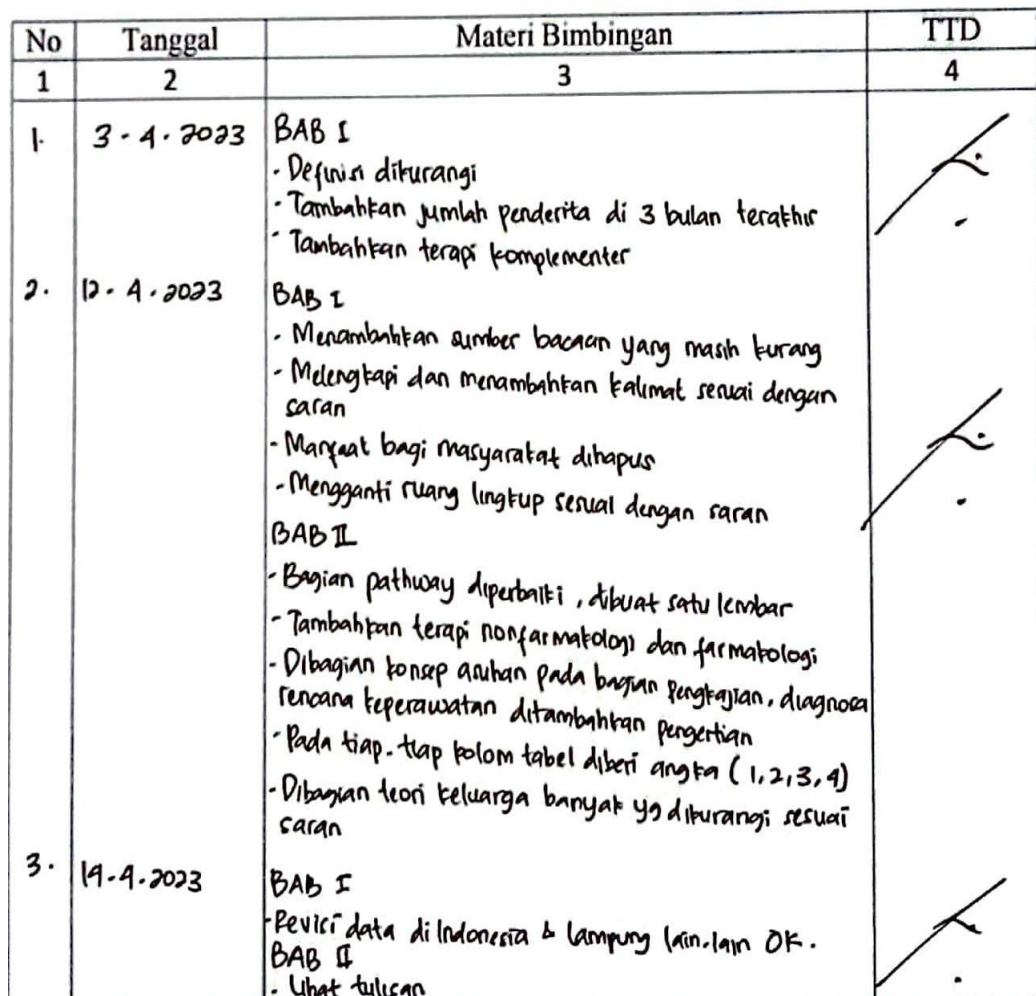 No Tanggal Materi Bimbingan TTD
1 2 3 4
1. 3-4-2023 BAB I
- Definisi dikurangi
- Tambahkan jumlah penderita di 3 bulan terakhir
- Tambahkan terapi komplementer
2. 12-4-2023 BAB I
- Menambahkan sumber bacaan yang masih kurang
- Melengkapi dan menambahkan kalimat sesuai dengan
saran
- Manfaat bagi masyarakat dihapus
- Mengganti ruang lingkup sesuai dengan saran
BAB II
- Bagian pathway diperbaiki, dibuat satu lembar
- Tambahkan terapi nonfarmakologi dan farmakologi
- Dibagian konsep asuhan pada bagian pengkajian, diagnosa
rencana keperawatan ditambahkan pengertian
- Pada tiap-tiap kolom tabel diberi angka (1,2,3,4)
- Dibagian teori keluarga banyak yg dikurangi sesuai
saran
3. 14-4-2023 BAB I
- Revisi data di Indonesia & Lampung lain-lain OK.
BAB II
- Lihat tulisan